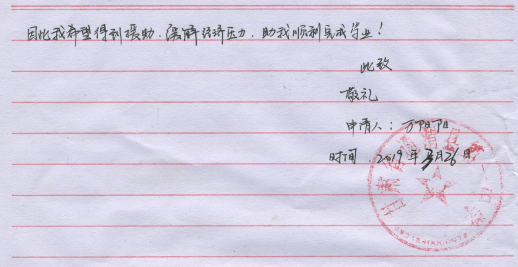 因此我希望得到援助,缓解经济压力,助我顺利完成学业!
此致
敬礼
申请人:万阳阳
时间 2019年3月26日